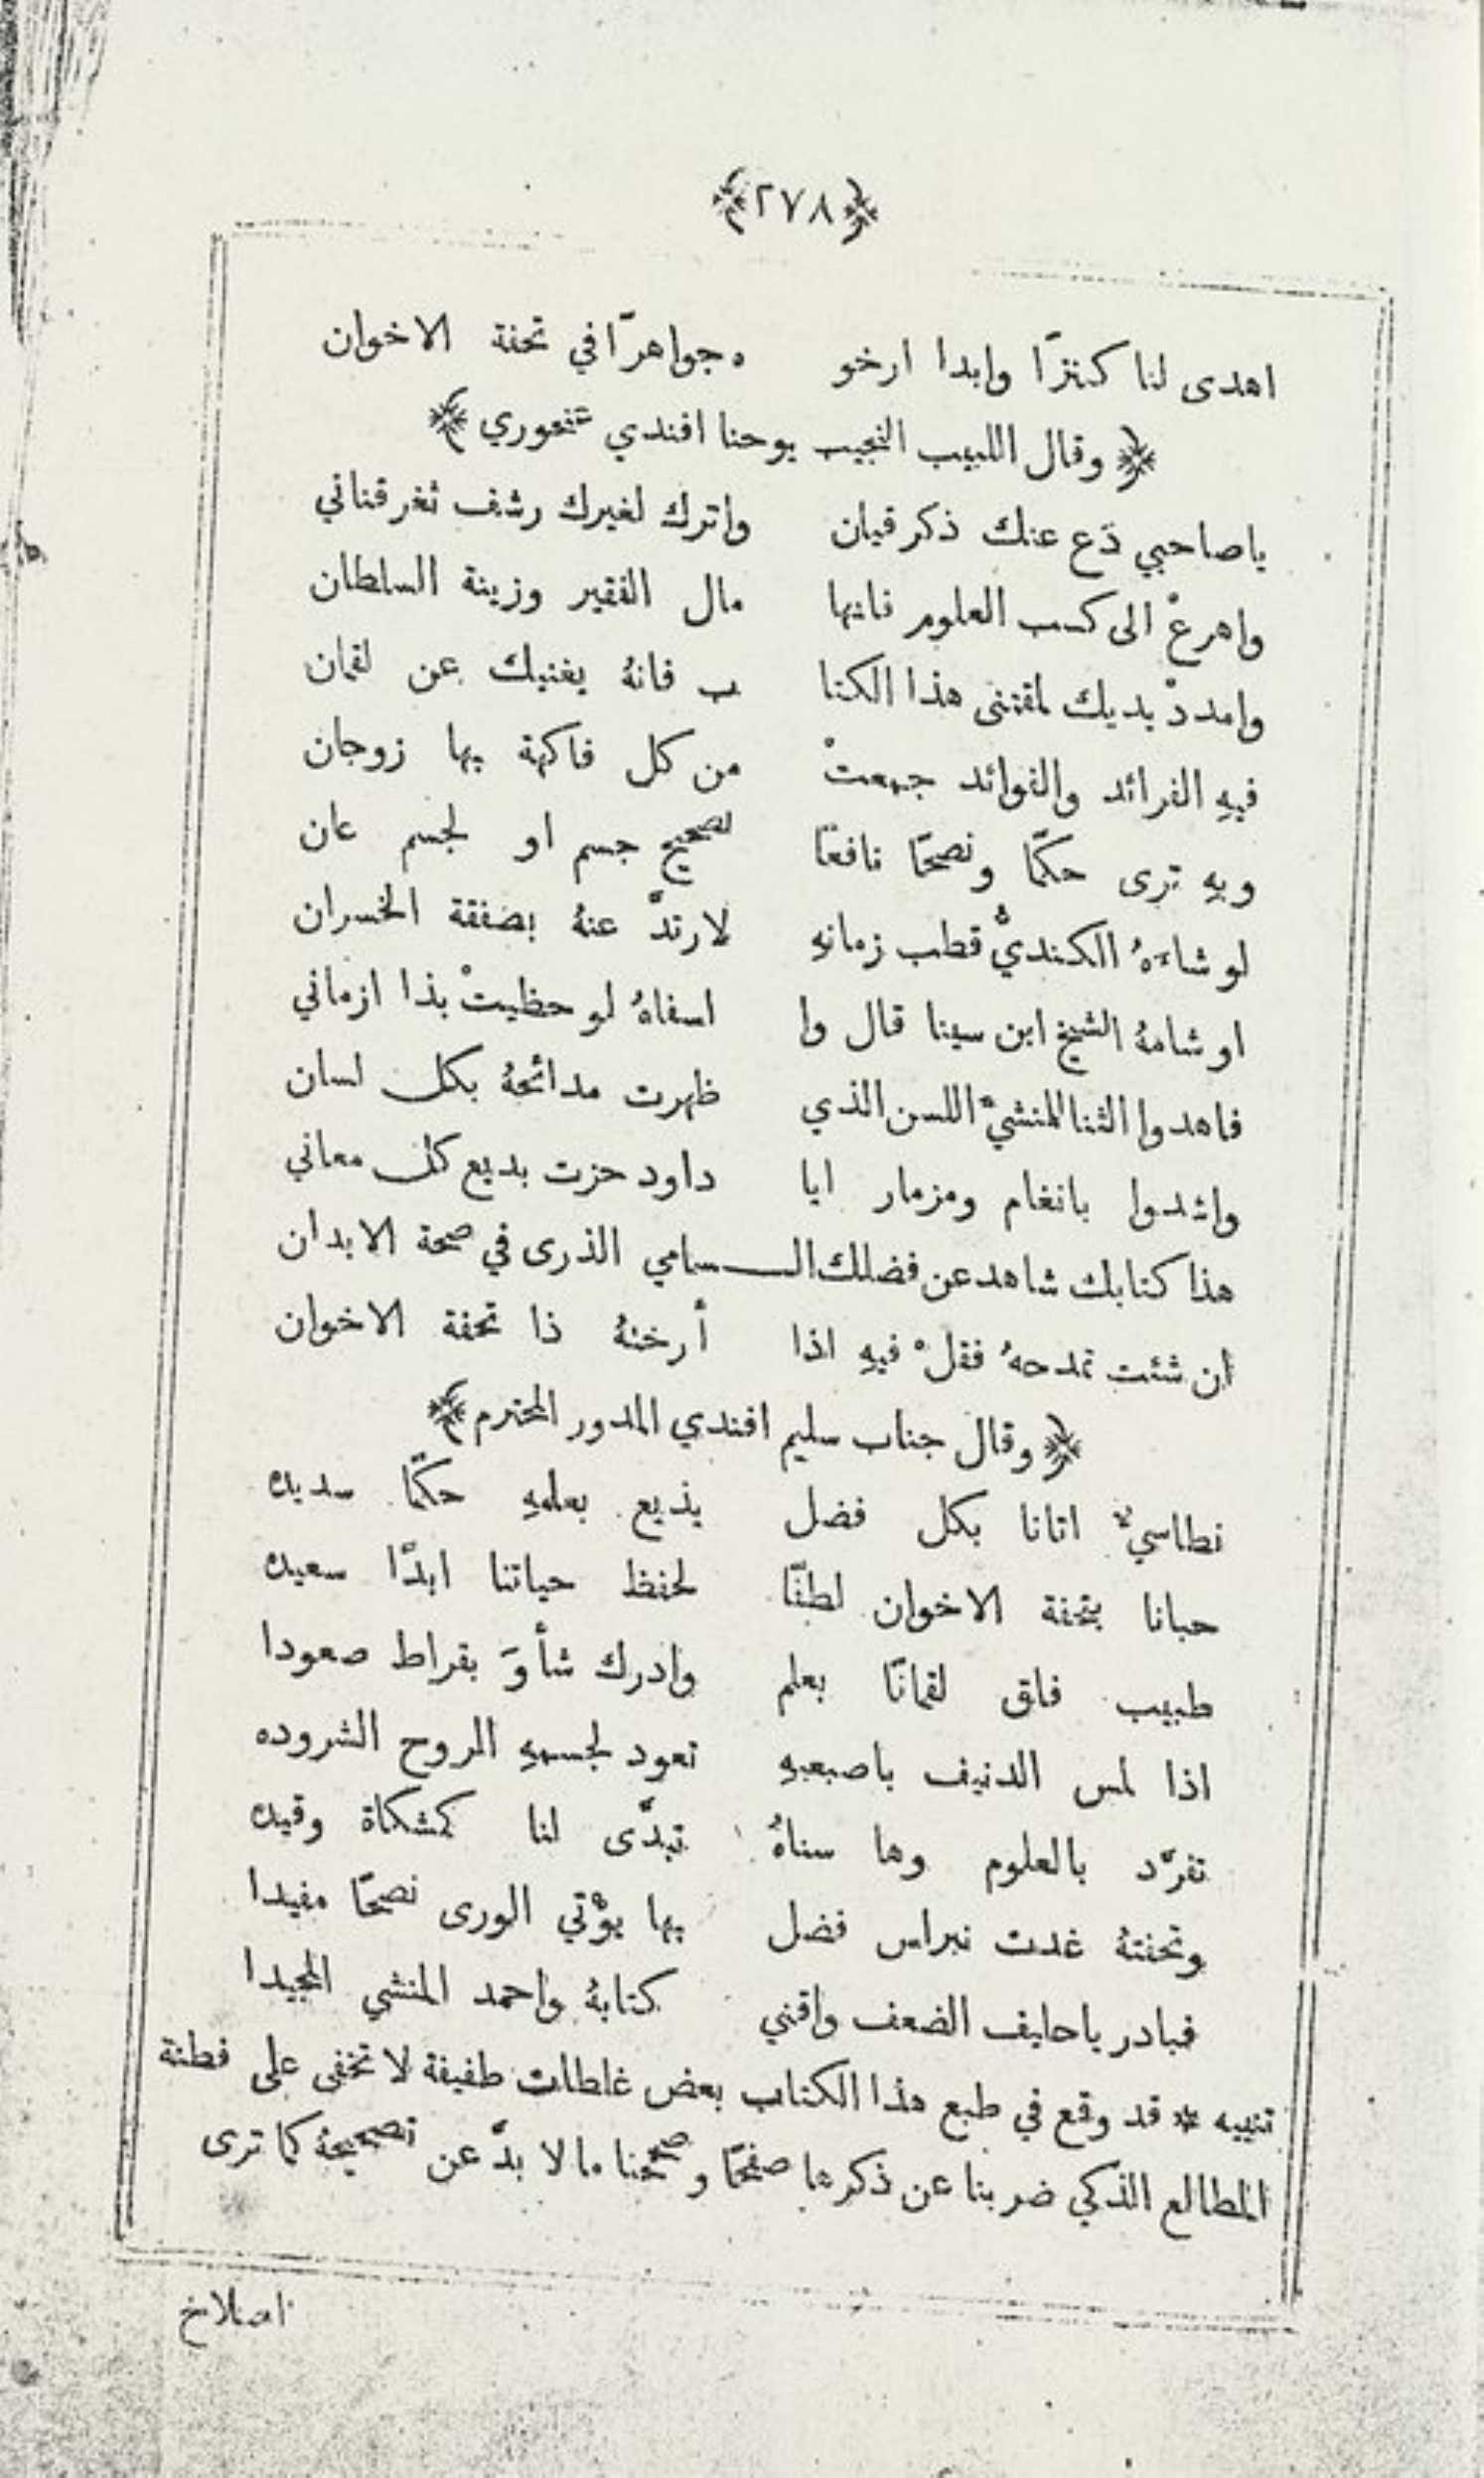 ﴿٢٧٨﴾
اهدى لنا كنزًا وابدا ارخو ه جواهرًا في تحفة الاخوان
﴿ وقال اللبيب النجيب يوحنا افندي عنحوري ﴾
ياصاحبي دَع عنك ذكر قيان واترك لغيرك رشف ثغر قناني
واهرعْ الى كسب العلوم فانها مال الفقير وزينة السلطان
وامددْ يديك لمقتنى هذا الكتا ب فانهُ يغنيك عن لقمان
فيهِ الفرائد والفوائد جمعتْ من كل فاكهة بها زوجان
وبهِ ترى حكمًا ونصحًا نافعًا لصحيح جسم او لجسم عان
لو شاءهُ الكنديُّ قطب زمانهِ لارتدَّ عنهُ بصفقة الخسران
او شامهُ الشيخ ابن سينا قال وا اسفاهُ لو حظيتْ بذا ازماني
فاهدوا الثنا لمنشيءِ اللسن الذي ظهرت مدائحهُ بكل لسان
واشدوا بانغام ومزمار ايا داود حزت بديع كل معاني
هذا كتابك شاهد عن فضلك الـسامي الذرى في صحة الابدان
ان شئت تمدحهُ فقلْ فيهِ اذا أرختهُ ذا تحفة الاخوان
﴿ وقال جناب سليم افندي المدور المحترم ﴾
نطاسيٌّ اتانا بكل فضل يذيع بعلمهِ حكمًا سديده
حبانا بتحفة الاخوان لطفًا لحفظ حياتنا ابدًا سعيده
طبيب فاق لقمانًا بعلم وادرك شأوَ بقراط صعودا
اذا لمس الدنيف باصبعيهِ تعود لجسمهِ الروح الشروده
تفرَّد بالعلوم وها سناهُ تبدَّى لنا كمشكاة وقيده
وتحفتهُ غدت نبراس فضل بها يؤتي الورى نصحًا مفيدا
فبادر ياحليف الضعف واقنني كتابهُ واحمد المنشي المجيدا
تنبيه * قد وقع في طبع هذا الكتاب بعض غلطات طفيفة لا تخفى على فطنة
المطالع الذكي ضربنا عن ذكرها صفحًا وصححنا ما لا بدَّ عن تصحيحهُ كما ترى
اصلاح